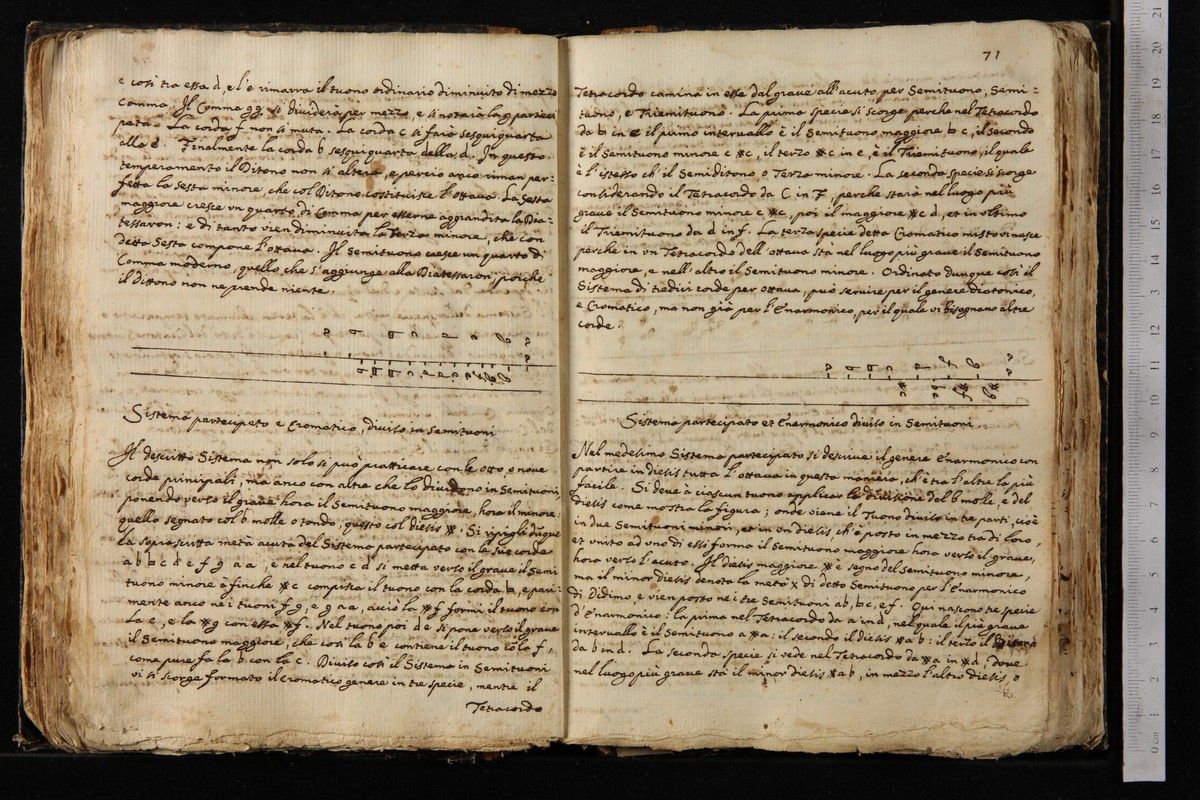 e così tra essa d, e l'e rimarrà il tuono ordinario diminuito di mezzo
Comma. Il Comma gg si dividerà per mezzo, e si noterà la g partici
pata. La corda f non si muta. La corda c si farà sesquiquarta
alla e. Finalmente la corda b sesquiquarta della d. In questo
temperamento il Ditono non si altera, e perciò anco riman per-
fetta la sesta minore, che col Ditono costituisce l'ottava. La Sesta
maggiore cresce un quarto di Comma per esserne aggrandita la Dia-
tessaron: e di tanto vien diminuita la Terza minore, che con
detta Sesta compone l'ottava. Il Semituono cresce un quarto di
Comma moderno, quello che s'aggiunge alla Diatessaron, poiche
il Dittono non ne prende niente.
Sistema partecipato e Cromatico, diviso in semituoni
Il descritto Sistema non solo si può pratticare con le otto o nove
corde principali, ma anco con altre che lo dividono in Semituoni,
ponendo verso il grave hora il Semituono maggiore, hora il minore:
quello segnato col b molle o tondo, questo col diesis ※. Si ripigli dũque
la soprascritta metà acuta del Sistema partecipato con le sue corde
a b b c d e f g a a, e nel tuono c d si metta verso il grave il Semi
tuono minore è finche ※c compisca il tuono con la corda b, e pari-
mente anco nei tuoni f g, e g a a, acciò la ※f formi il tuono con
la e, e la ※g con essa ※f. Nel tuono poi d e si pone verso il grave
il Semituono maggiore, che così la b e contiene il tuono cõ la f,
come pure fa la b con la c. Diviso così il Sistema in Semituoni
vi si scorge formato il cromatico genere in tre specie, mentre il
Tetracordo
71
Tetracordo camina in esse dal grave all'acuto per Semituono, Semi-
tuono, e Triemituono. La prima specie si scorge perche nel Tetracordo
da b in e il primo intervallo è il Semituono maggiore b c, il secondo
è il semituono minore c ※c, il terzo ※c in e, è il Triemituono, il quale
è l'istesso ch'il Semiditono, o Terza minore. La seconda specie si scorge
considerando il Tetracordo da C in F, perche starà nel luogo più
grave il Semituono minore c ※c, poi il maggiore ※c d, et in ultimo
il Triemituono da d in f. La terza specie detta Cromatico misto
perche in un Tetracordo dell'ottava stà nel luogo più grave il Semituono
maggiore, e nell'altro il Semituono minore. Ordinato dunque così il
Sistema di tredici corde per ottava, può servire per il genere Diatonico,
e Cromatico, ma non già per l'Enarmonico, per il quale vi bisognano altre
corde.
Sistema partecipato et Enarmonico diviso in Semituoni.
Nel medesimo Sistema partecipato si descrive il genere Enarmonico con
partire in diesis tutta l'ottava in questa maniera, ch'è tra l'altre la più
facile. Si deve à ciascun tuono applicar la divisione del b molle, e del
diesis come mostra la figura; onde viene il Tuono diviso in tre parti, cioè
in due Semituoni minori, et in un diesis, ch'è posto in mezzo tra di loro,
et unito ad uno di essi forma il semituono maggiore hora verso il grave,
hora verso l'acuto. Il diesis maggiore ※ è segno del Semituono minore,
ma il minor diesis denota la metà x di detto Semituono per l'Enarmonico
di Didimo, e vien posto nei tre Semituoni ab, bc, e f. Qui nascono tre specie
d'Enarmonico: la prima nel Tetracordo da a in d, nel quale il più grave
intervallo è il Semituono a ※a: il secondo il diesis ※a b: il terzo il Ditono
da b in d. La seconda specie si vede nel Tetracordo da ※a in ※d, dove
nel luogo più grave stà il minor diesis ※a b, in mezzo l'altro diesis, o